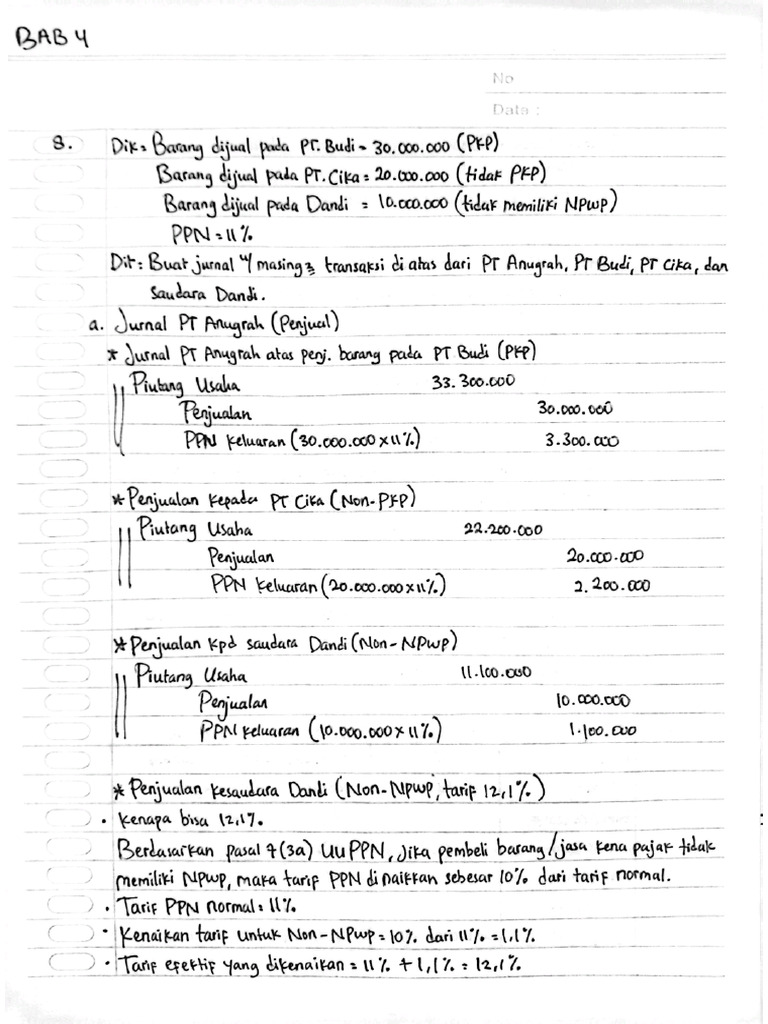 BAB 4
No
Data :
8. Dik = Barang dijual pada PT. Budi = 30.000.000 (PKP)
Barang dijual pada PT. Cika = 20.000.000 (tidak PKP)
Barang dijual pada Dandi = 10.000.000 (tidak memiliki NPWP)
PPN = 11%
Dit : Buat jurnal u/ masing2 transaksi di atas dari PT Anugrah, PT Budi, PT Cika, dan
Saudara Dandi.
a. Jurnal PT Anugrah (Penjual)
* Jurnal PT Anugrah atas penj. barang pada PT Budi (PKP)
Piutang Usaha 33.300.000
Penjualan 30.000.000
PPN Keluaran (30.000.000 x 11%) 3.300.000
* Penjualan kepada PT Cika (Non-PKP)
Piutang Usaha 22.200.000
Penjualan 20.000.000
PPN Keluaran (20.000.000 x 11%) 2.200.000
* Penjualan kpd saudara Dandi (Non-NPWP)
Piutang Usaha 11.100.000
Penjualan 10.000.000
PPN Keluaran (10.000.000 x 11%) 1.100.000
* Penjualan kesaudara Dandi (Non-NPWP, tarif 12,1%)
• Kenapa bisa 12,1%.
Berdasarkan pasal 7 (3a) UU PPN, jika pembeli barang/jasa kena pajak tidak
memiliki NPWP, maka tarif PPN dinaikkan sebesar 10% dari tarif normal.
• Tarif PPN normal = 11%
• Kenaikan tarif untuk Non-NPWP = 10% dari 11% = 1,1%
• Tarif efektif yang dikenaikan = 11% + 1,1% = 12,1%